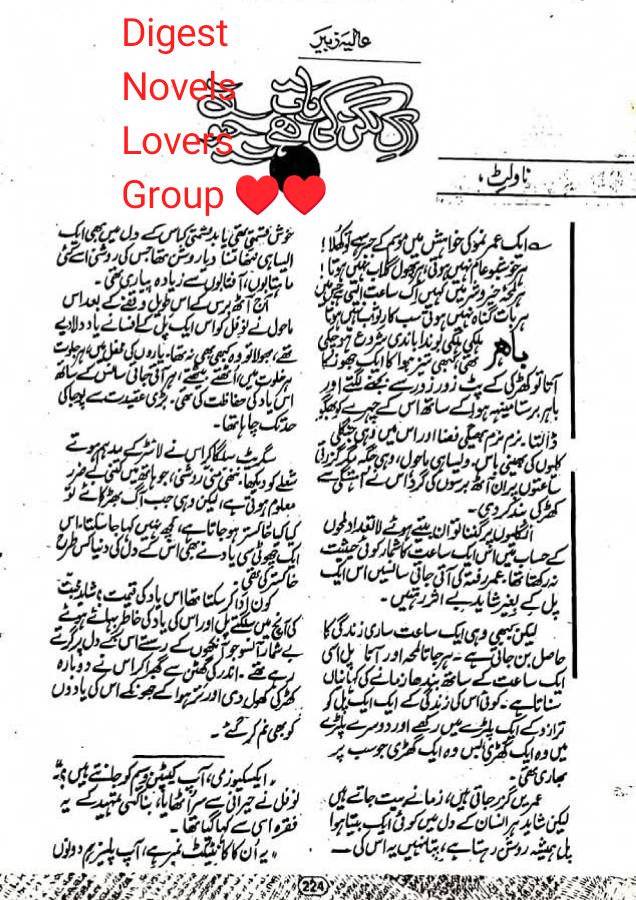 Digest
Novels
Lovers
Group ❤️❤️
عالیہ زبیر
ناولٹ،
ے ایک عمر نمو کی خواہش میں موسم کے جبر سہے تو کھلا!
ہر خوشبو عام نہیں ہوتی، ہر پھول گلاب نہیں ہوتا!
ہر لمحہ خیر و شر میں کہیں اک ساعت ایسی ہے جس میں
ہر بات گناہ نہیں ہوتی سب کارِ ثواب نہیں ہوتا
باہر ہلکی ہلکی بوندا باندی شروع ہو چکی
تھی، کبھی تیز ہوا کا ایک جھونکا
آتا تو کھڑکی کے پٹ زور زور سے بجنے لگتے اور
باہر برستا مینہ ہوا کے ساتھ اس کے چہرے کو بھگو
ڈالتا۔ نرم نرم بھیگی فضا اور اس میں وہی جنگلی
گلوں کی بھینی باس۔ ویسا ہی ماحول، وہی جگہ مگر گزرتی
ساعتوں پر ان آٹھ برسوں کی گرد اس نے آہستگی سے
کھڑکی بند کر دی۔
انگلیوں پر گننا تو ان بیتے ہوئے لاتعداد لمحوں
کے حساب میں اس ایک ساعت کا شمار کوئی حیثیت
نہ رکھتا تھا، عمر رفتہ کی آتی جاتی سانسیں اس ایک
پل کے بغیر شاید بے اثر رہتیں۔
لیکن کبھی وہی ایک ساعت ساری زندگی کا
حاصل بن جاتی ہے۔ ہر جاتا لمحہ اور آتا پل اسی
ایک ساعت کے ساتھ بندھا زمانے کی کہانیاں
سناتا ہے۔ کوئی اس کی زندگی کے ایک ایک پل کو
ترازو کے ایک پلڑے میں رکھے اور دوسرے پلڑے
میں وہ ایک گھڑی، بس وہ ایک گھڑی جو سب پر
بھاری تھی۔
عمریں گزر جاتی ہیں، زمانے بیت جاتے ہیں
لیکن شاید ہر انسان کے دل میں کوئی ایک بیتا ہوا
پل ہمیشہ روشن رہتا ہے، پتا نہیں یہ اس کی
خوش قسمتی تھی یا بدقسمتی کہ اس کے دل میں بھی ایک
ایسا ہی ننھا منا دیا روشن تھا جس کی روشنی اسے کئی
ماہتابوں، آفتابوں سے زیادہ پیاری تھی۔
آج آٹھ برس کے اس طویل وقفے کے بعد اس
ماحول نے نوفل کو اس ایک پل کے افسانے یاد دلا دیے
تھے، بھولا تو وہ کبھی بھی نہ تھا۔ یاروں کی محفل میں، ہر جلوت
ہر خلوت میں، اٹھتے بیٹھتے، ہر آتی جاتی سانس کے ساتھ
اس یاد کی حفاظت کی تھی۔ بڑی عقیدت سے پوجا کی
حد تک چاہا تھا۔
سگریٹ سلگا کر اس نے لائٹر کے مدہم ہوتے
شعلے کو دیکھا۔ ننھی سی روشنی، جو ہاتھ میں کتنی بے ضرر
معلوم ہوتی ہے، لیکن وہی جب آگ بھڑکانے لگے تو
کیا کیا خاکستر ہو جاتا ہے، کچھ نہیں کہا جا سکتا۔ اس
ایک چھوٹی سی یاد نے بھی اس کے دل کی دنیا کس طرح
خاکستر کی تھی۔
کون ادا کر سکتا تھا اس یاد کی قیمت؛ شاید محبت
کی آنچ میں سلگتے پل اور اس کی یاد کی خاطر بہائے ہوئے
بے شمار آنسو جو آنکھوں کے رستے اس کے دل پر گرتے
رہے تھے۔ اندر کی گھٹن سے گھبرا کر اس نے دوبارہ
کھڑکی کھول دی اور تیز ہوا کے جھونکے اس کی یادوں
کو بھی نم کر گئے۔
"ایکسکیوز می، آپ کیپٹن وسیم کو جانتے ہیں؟"
نوفل نے حیرانی سے سر اٹھایا، بنا کسی تمہید کے یہ
فقرہ اسی سے کہا گیا تھا۔
"یہ ان کا کانٹیکٹ نمبر ہے، آپ پلیز ہم دونوں
224